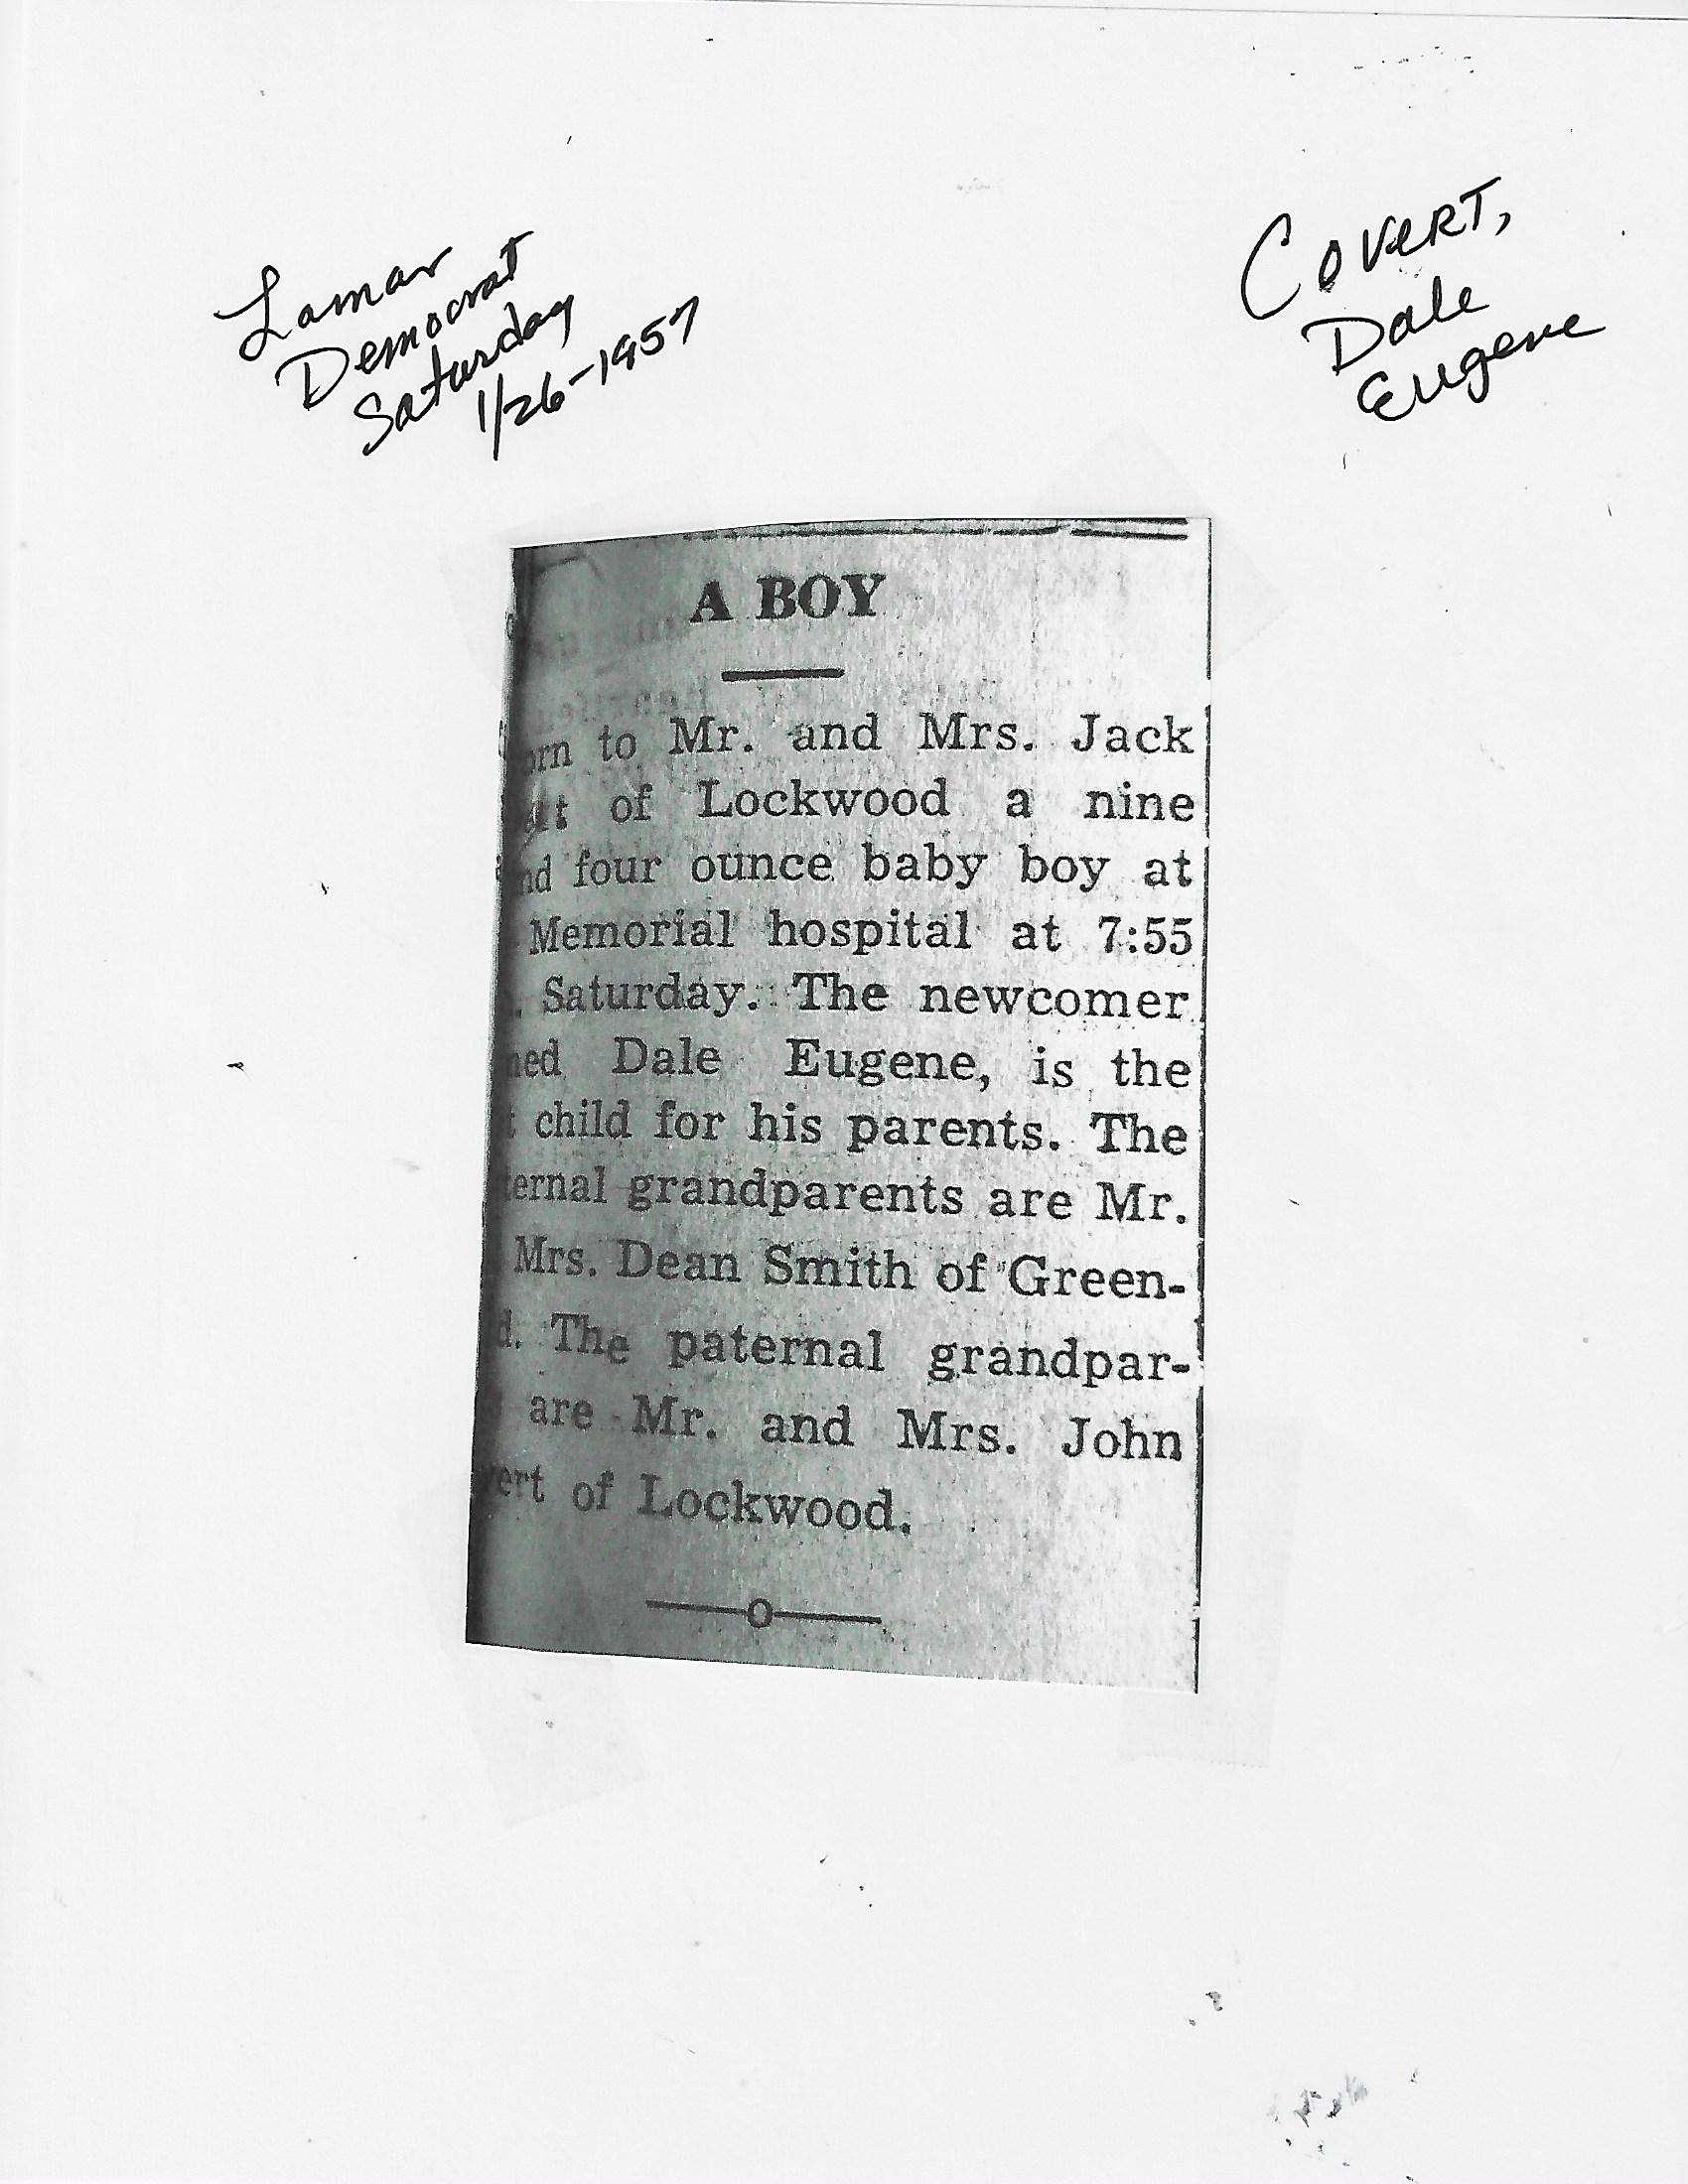 Lamar
Democrat
Saturday
1/26-1957
Covert,
Dale
Eugene
A BOY
orn to Mr. and Mrs. Jack
of Lockwood a nine
nd four ounce baby boy at
Memorial hospital at 7:55
. Saturday. The newcomer
ned Dale Eugene, is the
t child for his parents. The
ternal grandparents are Mr.
Mrs. Dean Smith of Green-
d. The paternal grandpar-
are Mr. and Mrs. John
vert of Lockwood.